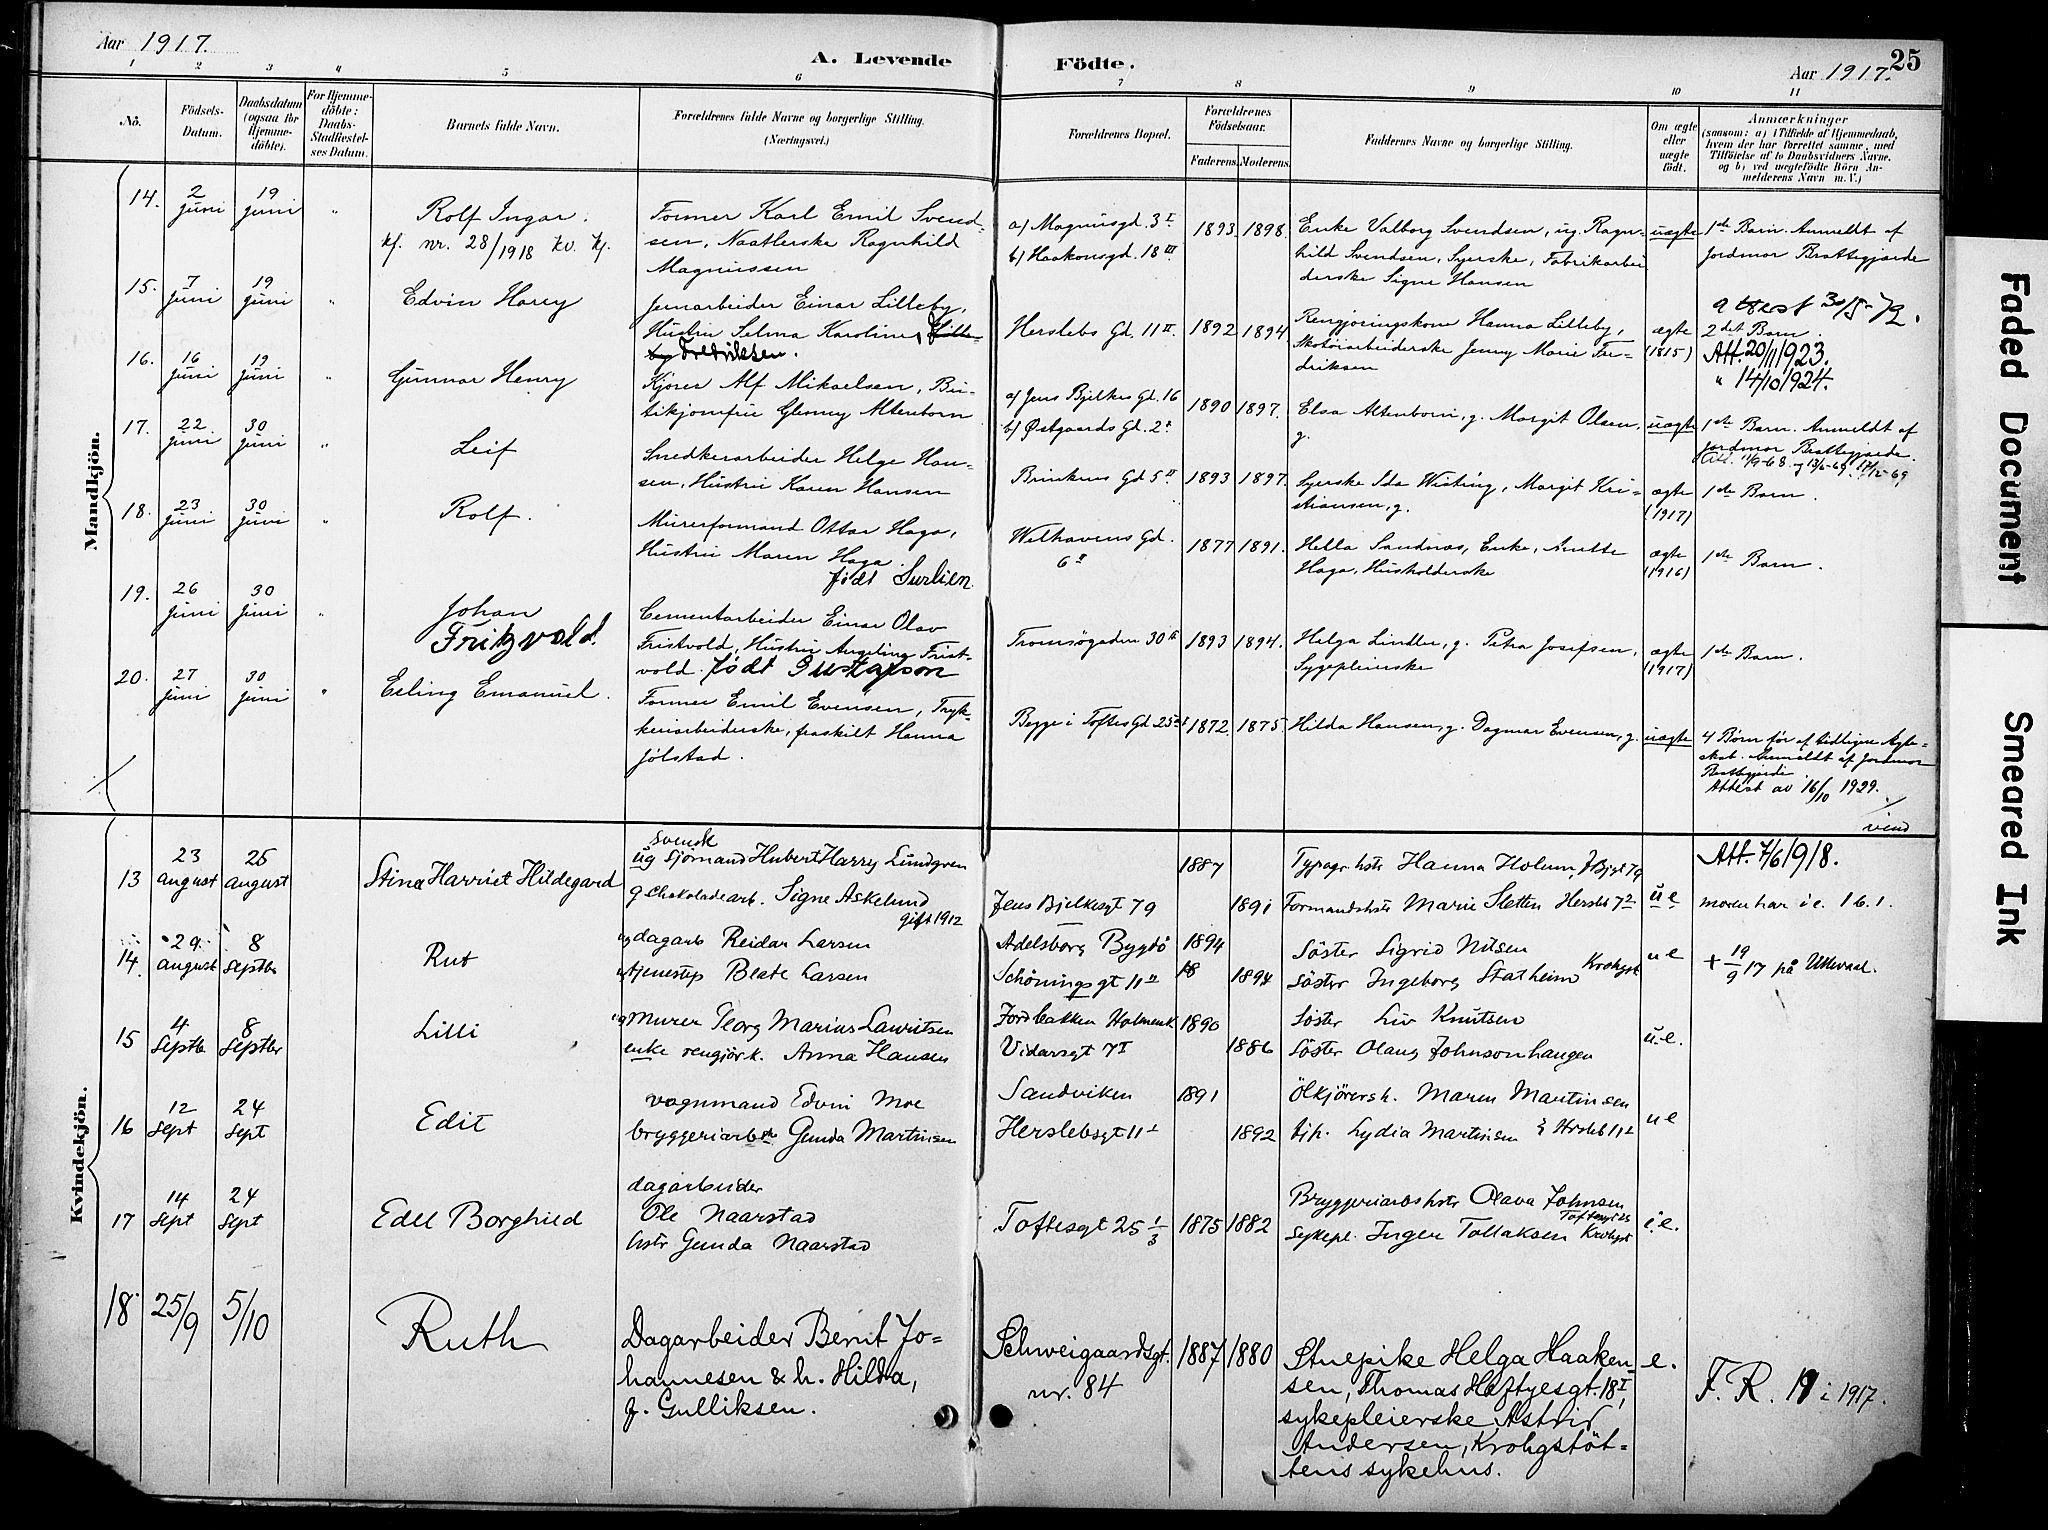 Aar 1917.
A. Levende Födte.
Aar 1917.
25
1 2 3 4 5 6 7 8 9 10 11
No.
Födsels-Datum.
Daabsdatum (ogsaa for Hjemmedöbte).
For Hjemmedöbte: Daabs-Stadfæstelses Datum.
Barnets fulde Navn.
Forældrenes fulde Navne og borgerlige Stilling.
(Næringsvei.)
Forældrenes Bopæl.
Forældrenes Födselsaar.
Faderens. Moderens.
Faddernes Navne og borgerlige Stilling.
Om ægte eller uægte födt.
Anmærkninger
(saasom: a) i Tilfælde af Hjemmedaab, hvem der har forrettet samme, med Tilföielse af to Daabsvidners Navne, og b) ved uægtefödte Börn Anmelderens Navn m. V.)
Mandkjön.
14. 2 juni 19 juni " Rolf Ingar.
kf. nr. 28/1918 kv. kf.
Former Karl Emil Svendsen, Naatlerske Ragnhild Magnussen
a) Magnusgd. 3 I
b) Haakonsgd. 18 III
1893. 1898.
Enke Valborg Svendsen, ug. Ragnhild Svendsen, Syerske, Fabrikarbeiderske Signe Hansen
uægte
1ste Barn. Anmeldt af Jordmor Brattegjærde
15. 7 juni 19 juni " Edvin Harry
Jernarbeider Einar Lilleby, Hustru Selma Karoline, Fredriksen.
Herslebs Gd. 11 II 1892 1894
Rengjøringskone Hanna Lilleby, Skotøiarbeiderske Jenny Marie Fredriksen
ægte (1815)
attest 30/5-72.
2det Barn.
Att. 20/11 1923.
" 14/10 1924.
16. 16 juni 19 juni " Gunnar Henry
Kjører Alf Mikaelsen, Butikjomfru Glenny Altenborn
a) Jens Bjelkes Gd. 16
b) Østgaards Gd. 2
1890 1897.
Elsa Altenborn, g. Margit Olsen, g.
uægte
1ste Barn. Anmeldt af Jordmor Brattegjærde.
17. 22. juni 30 juni " Leif
Snedkerarbeider Helge Hansen, Hustru Karen Hansen
Brinkens Gd 5 II 1893 1897.
Syerske Ida Wistring, Margit Kristiansen, g.
ægte (1917)
1ste Barn.
18. 23 juni 30 juni " Rolf.
Murerformand Ottar Haga, Hustru Maren Haga.
født Surlien.
Welhavens Gd. 6 1877 1891.
Hella Sandnæs, Enke, Anette Haga, Husholderske
ægte (1916)
1ste Barn.
19. 26 juni 30 juni " Johan
Fritzvold.
Cementarbeider Einar Olav Fristvold, Hustru Angeline Fristvold. født Gustafson
Tromsøgaden 30 1893 1894.
Helga Lindler, g. Petra Josefsen, Sygepleierske
ægte (1917)
1ste Barn.
20. 27 juni 30 juni " Erling Emanuel.
Former Emil Evensen, Trykkeriarbeiderske, fraskilt Hanna Jølstad.
Begge i Toftes Gd 25 1872. 1875.
Hilda Hansen, g. Dagmar Evensen, g.
uægte
4 Børn før af tidligere Ægteskab. Anmeldt af Jordmor Brattegjærde
Attest av 16/10 1929.
vend
Kvindekjön.
13 23 august 25 august Stina Harriet Hildegard
svensk
ug sjømand Hubert Harry Lundgren
g chokoladearb. Signe Askelund
gift 1912
Jens Bjelkesgt 79
1887 1891
Typogr. hstr Hanna Holum, J Bjgt 79
Formandshstr Marie Sletten Hersleb 7 2
u e
Att. 7/6 1918.
moren har i e. 1 b. 1.
14. 29 august 8 septbr Rut
ug dagarb Reidar Larsen
ug tjenestep Beate Larsen
Adelsborg Bygdö
Schöningsgt 11 II
1894 1894
Söster Sigrid Nilsen
Söster Ingeborg Statheim Krohgst
u e
+ 19/9 17 på Ullevaal.
15 4 Septbr 8 Septbr Lilli
ug Murer Georg Marius Lauritsen
enke rengjör. k. Anna Hansen
Jordbakken Holmenk
Vidarsgt 7 I
1890 1886
Söster Liv Knutsen
Söster Olaug Johnsonhaugen
u. e.
16 12 sept 24 sept Edit
vognmand Edvin Moe
bryggeriarbstr Gunda Martinsen
Sandviken
Herslebsgt 11
1891 1892
Ölkjörersh. Maren Martinsen
tjp. Lydia Martinsen Hersleb 11
u e
17 14 sept 24 sept Edel Borghild
dagarbeider
Ole Naarstad
hstr Gunda Naarstad
Toftesgt 25 1/3 1875 1882
Bryggeriarbshstr Olava Johnsen
Toftesgt 25
Sykepl. Inger Tollaksen Krohgst
i. e.
18. 25/9 5/10 Ruth
Dagarbeider Bernt Johannesen & h. Hilda, f. Gulliksen.
Schweigaardsgt. nr. 84
1887 1880
Stuepike Helga Haakensen, Thomas Heftyesgt. 18 I, sykepleierske Astrid Andersen, Krohgstøttens sykehus.
e.
F. R. 11 i 1917.
Faded Document
Smeared Ink